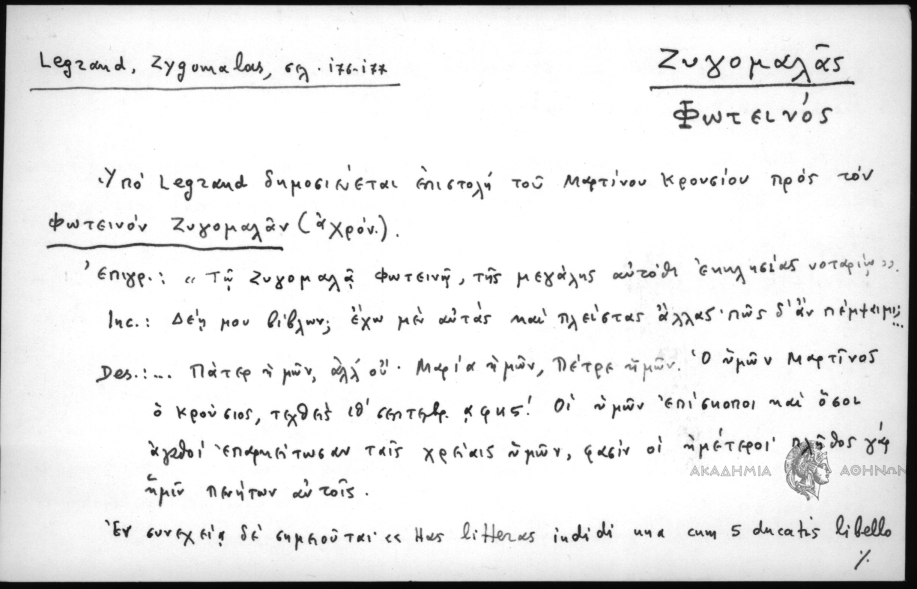 Legrand, Zygomalas, σελ. 176-177
Ζυγομαλᾶς
Φωτεινός
Ὑπό Legrand δημοσιεύεται ἐπιστολή τοῦ Μαρτίνου Κρουσίου πρός τόν
Φωτεινόν Ζυγομαλᾶν (ἀχρόν.).
Ἐπιγρ.: « Τῷ Ζυγομαλᾷ Φωτεινῷ, τῆς μεγάλης αὐτόθι ἐκκλησίας νοταρίῳ».
Inc.: Δέῃ μου βίβλων; ἔχω μέν αὐτάς καί πλείστας ἄλλας· πῶς δ' ἄν πέμψαιμι;...
Des.:... Πάτερ ἡμῶν, ἀλλ' οὔ· Μαρία ἡμῶν, Πέτρε ἡμῶν. Ὁ ὑμῶν Μαρτῖνος
ὁ Κρούσιος, τεχθείς ιθ' σεπτεβρ. αφκς! Οἱ ὑμῶν ἐπίσκοποι καί ὅσοι
ἀγαθοί ἐπαρκείτωσαν ταῖς χρείαις ὑμῶν, φασίν οἱ ἡμέτεροι· πλῆθος γάρ
ἡμῖν πενήτων αὐτοῖς.
ΑΚΑΔΗΜΙΑ ΑΘΗΝΩΝ
Ἐν συνεχείᾳ δέ σημειοῦται «Has litteras indidi una cum 5 ducatis libello
%